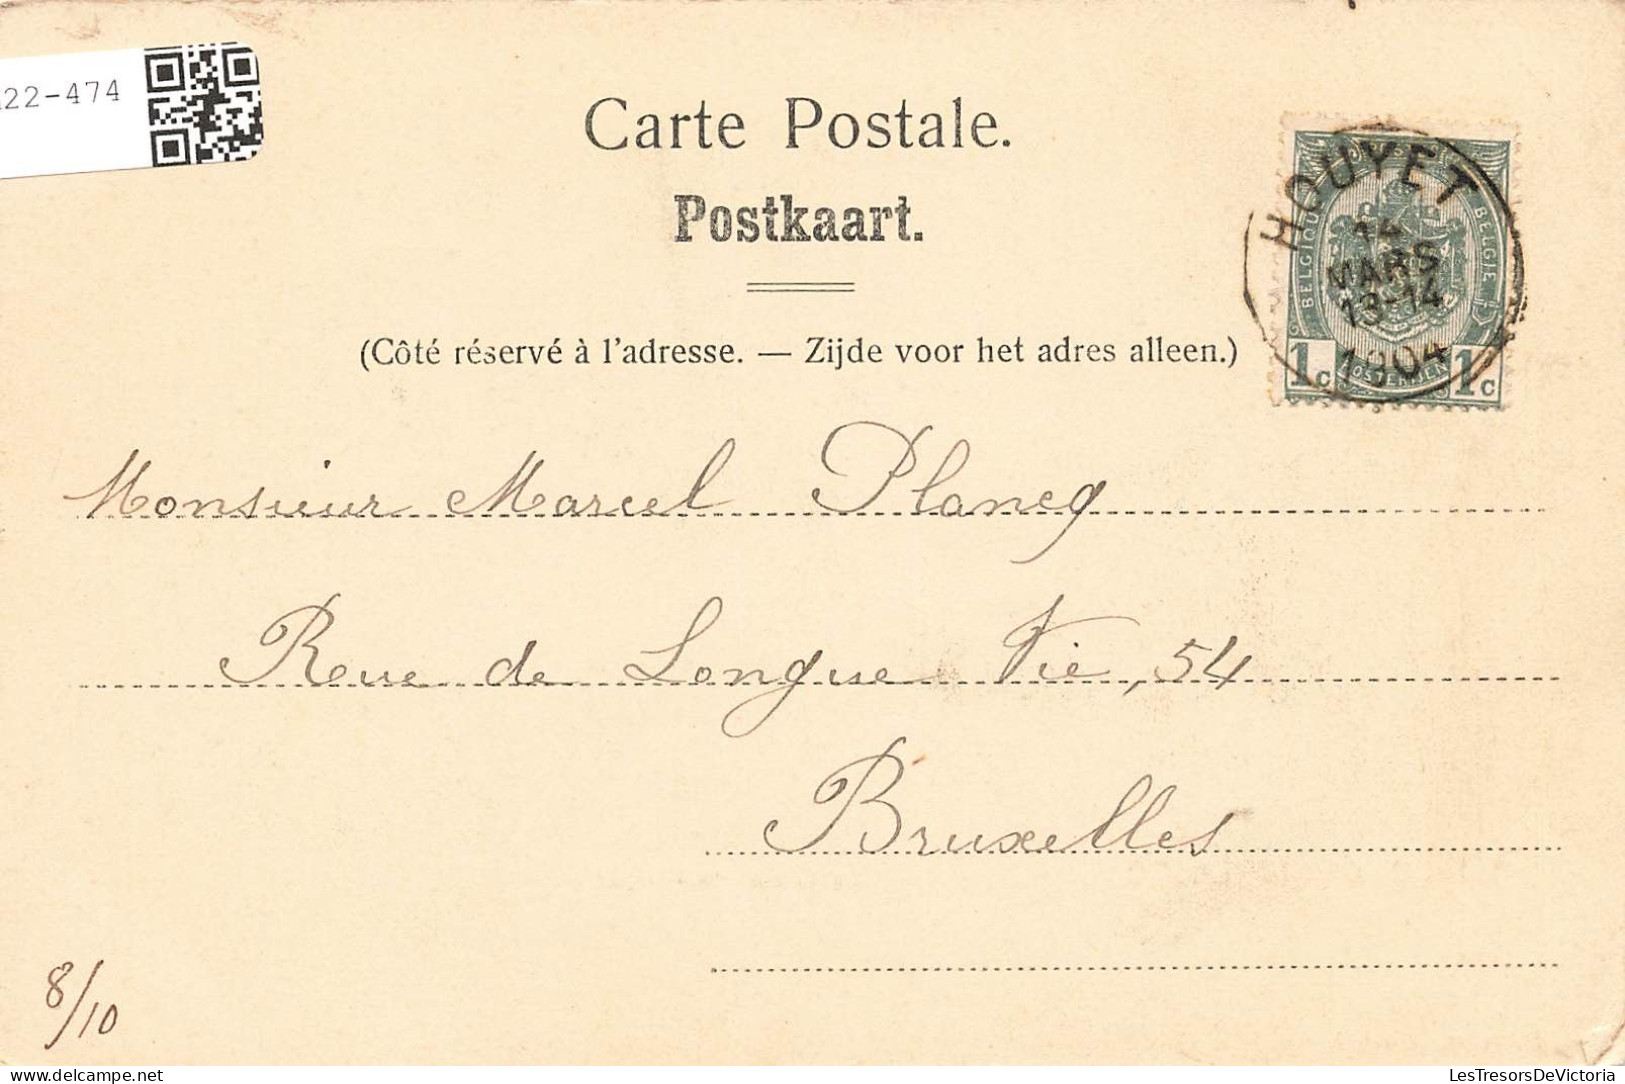 22-474
Carte Postale.
Postkaart.
(Côté réservé à l'adresse. — Zijde voor het adres alleen.)
HOUYET
14
MARS
13-14
1904
BELGIQUE
BELGIE
1c
1c
Monsieur Marcel Plancq
Rue de Longue Vie, 54
Bruxelles
8/10
LesTresorsDeVictoria